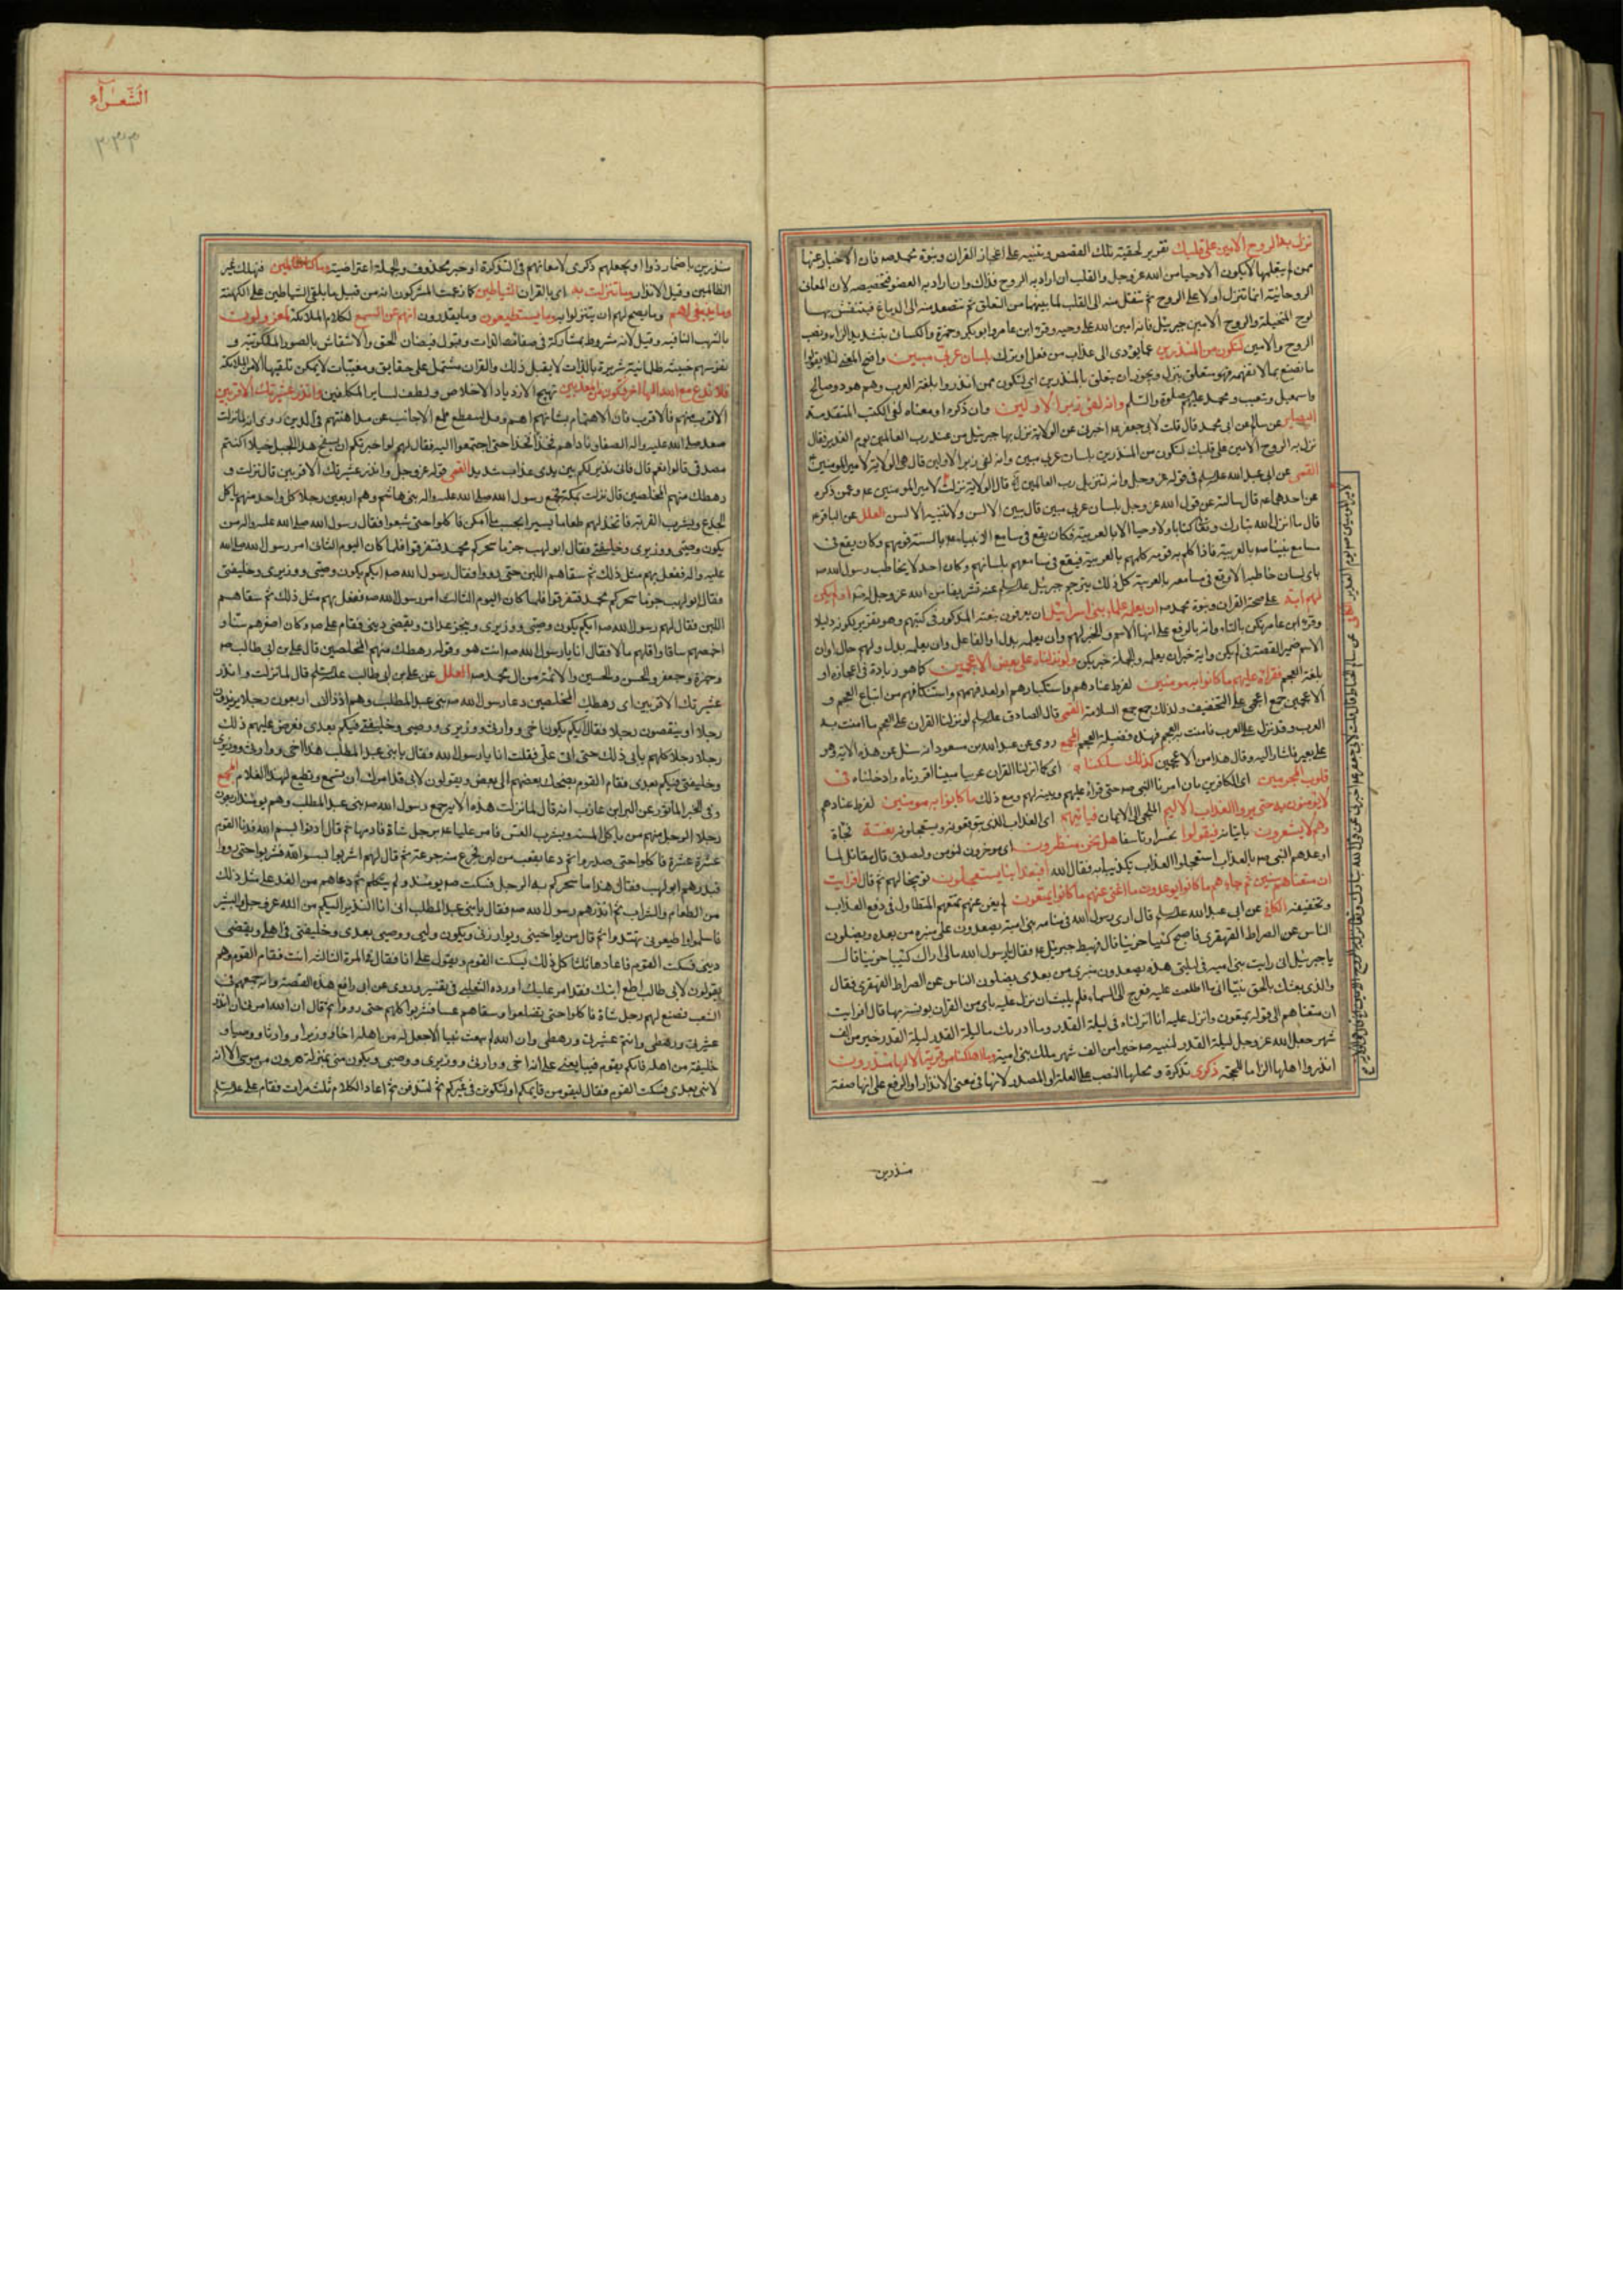 نزل به الروح الامين على قلبك تقرير لحقيته تلك القصص وتنبيه على اعجاز القران ونبوة محمد صه فان الاخبار عنها
ممن لم يتعلمها لا يكون الا وحيا من الله عز وجل والقلب ان اراد به الروح فذاك وان اراد به العضو فتخصيصه لان المعانى
الروحانية انما تنزل اولا على الروح ثم تنتقل منه الى القلب لما بينهما من التعلق ثم تتصعد منه الى الدماغ فينتقش بها
لوح المتخيلة والروح الامين جبرئيل فانه امين الله على وحيه وقرء ابن عامر وابو بكر وحمزة والكسائى بتشديد الزاء ونصب
الروح والامين لتكون من المنذرين عما يؤدى الى عذاب من فعل او ترك بلسان عربى مبين واضح المعنى لئلا يقولوا
ما نصنع بما لا نفهمه فهو متعلق بنزل ويجوز ان يتعلق بالمنذرين اى لتكون ممن انذروا بلغة العرب وهم هود وصالح
واسمعيل وشعيب ومحمد عليهم الصلوة والسلم وانه لفى زبر الاولين وان ذكره او معناه لفى الكتب المتقدمة
البصاير عن سالم عن ابى محمد قال قلت لابى جعفر عه اخبرنى عن الولاية نزل بها جبرئيل من عند رب العالمين يوم الغدير فقال
نزل به الروح الامين على قلبك لتكون من المنذرين بلسان عربى مبين وانه لفى زبر الاولين قال هى الولاية لامير المومنين
القمى عن ابى عبد الله علسلم فى قوله عز وجل وانه لتنزيل رب العالمين قال الولاية نزلت لامير المومنين عه وعمن ذكره
عن احدهما عه قال سالته عن قول الله عز وجل بلسان عربى مبين قال يبين الالسن ولا تبينه الالسن العلل عن الباقر عه
قال ما انزل الله تبارك وتعالى كتابا ولا وحيا الا بالعربية فكان يقع فى مسامع الانبياء عه بالسنة قومهم وكان يقع فى
مسامع نبينا صه بالعربية فاذا كلم به قومه كلمهم بالعربية فيقع فى مسامعهم بلسانهم وكان احد لا يخاطب رسول الله صه
باى لسان خاطبه الا وقع فى مسامعه بالعربية كل ذلك يترجم جبرئيل علسلم عنه تشريفا من الله عز وجل له صه او لم يكن
لهم اية على صحة القران ونبوة محمد صه ان يعلمه علماء بنى اسرائيل ان يعرفون بنعته المذكور فى كتبهم وهو تقرير لكونه دليلا
وقرء ابن عامر تكن بالتاء واية بالرفع على انها الاسم والخبر لهم وان يعلمه بدل او الفاعل وان يعلمه بدل ولهم حال او ان
الاسم ضمير القصة فى لم يكن واية خبر ان يعلمه والجملة خبر يكن ولو نزلناه على بعض الاعجمين كما هو زيادة فى اعجازه او
بلغة العجم فقراه عليهم ما كانوا به مومنين لفرط عنادهم واستكبارهم او لعدم فهمهم واستنكافهم من اتباع العجم و
الاعجمين جمع اعجمى على التخفيف ولذلك جمع جمع السلامة القمى قال الصادق علسلم لو نزلنا القران على العجم ما امنت به
العرب وقد نزل على العرب فامنت به العجم فهذه فضيلة العجم المجمع روى عن عبد الله بن مسعود انه سئل عن هذه الاية وهو
على بعير فاشار اليه وقال هذا من الاعجمين كذلك سلكناه اى كما انزلنا القران عربيا مبينا اقررناه وادخلناه فى
قلوب المجرمين اى الكافرين بان امرنا النبى صه حتى قراه عليهم وبينه لهم ومع ذلك ما كانوا به مومنين لفرط عنادهم
لا يؤمنون به حتى يروا العذاب الاليم الملجى الى الايمان فياتيهم اى العذاب الذى يتوقعونه ويستعجلونه بغتة فجأة
وهم لا يشعرون باتيانه فيقولوا تحسرا وتاسفا هل نحن منظرون اى موخرون لنؤمن ولنصدق قال مقاتل لما
اوعدهم النبى صه بالعذاب استعجلوا العذاب تكذيبا به فقال الله افبعذابنا يستعجلون توبيخا لهم ثم قال افرايت
ان متعناهم سنين ثم جاءهم ما كانوا يوعدون ما اغنى عنهم ما كانوا يمتعون لم يغن عنهم تمتعهم المتطاول فى دفع العذاب
وتخفيفه الكافى عن ابى عبد الله علسلم قال ارى رسول الله فى منامه بنى امية يصعدون على منبره من بعده ويضلون
الناس عن الصراط القهقرى فاصبح كئيبا حزينا قال فهبط جبرئيل عه فقال يا رسول الله مالى اراك كئيبا حزينا قال
يا جبرئيل انى رايت بنى امية فى ليلتى هذه يصعدون منبرى من بعدى يضلون الناس عن الصراط القهقرى فقال
والذى بعثك بالحق نبيا انى ما اطلعت عليه فعرج الى السماء فلم يلبث ان نزل عليه باى من القران يونسه بها قال افرايت
ان متعناهم الى قوله يمتعون وانزل عليه انا انزلناه فى ليلة القدر وما ادريك ما ليلة القدر ليلة القدر خير من الف
شهر جعل الله عز وجل ليلة القدر لنبيه صه خيرا من الف شهر ملك بنى امية وما اهلكنا من قرية الا لها منذرون
انذروا اهلها الزاما للحجة ذكرى تذكرة ومحلها النصب على العلة او المصدر لانها فى معنى الانذار او الرفع على انها صفة
منذرين
الشعراء
٣٣٣
منذرين باضمار ذووا او بجعلهم ذكرى لامعانهم فى التذكرة او خبر محذوف والجملة اعتراضية وما كنا ظالمين فنهلك غير
الظالمين وقبل الانذار وما تنزلت به اى بالقران الشياطين كما زعمت المشركون انه من قبيل ما يلقى الشياطين على الكهنة
وما ينبغى لهم وما يصح لهم ان يتنزلوا به وما يستطيعون وما يقدرون انهم عن السمع لكلام الملائكة لمعزولون
بالشهب الثاقبه وقيل لانه مشروط بمشاركة فى صفا الذات وقبول فيضان الحق والانتقاش بالصور الملكوتية و
نفوسهم خبيثة ظلمانية شريرة بالذات لا يقبل ذلك والقران مشتمل على حقايق ومغيبات لا يمكن تلقيها الا من الملائكة
فلا تدع مع الله الها اخر فتكون من المعذبين تهييج لازدياد الاخلاص ولطف لساير المكلفين وانذر عشيرتك الاقربين
الاقرب منهم فالاقرب فان الاهتمام بشانهم اهم
صعد صلى الله عليه واله الصفا وناداهم فخذا فخذا حتى اجتمعوا اليه فقال لهم لو اخبرتكم ان بسفح هذا الجبل خيلا اكنتم
مصدقى قالوا نعم قال فانى نذير لكم بين يدى عذاب شديد القمى قوله عز وجل وانذر عشيرتك الاقربين قال نزلت و
رهطك منهم المخلصين قال نزلت بمكة فجمع رسول الله صلى الله عليه واله بنى هاشم وهم اربعين رجلا كل واحد منهم ياكل
الجذع ويشرب القربة فاتخذ لهم طعاما يسيرا بحسب ما امكن فاكلوا حتى شبعوا فقال رسول الله صلى الله عليه واله من
يكون وصيى ووزيرى وخليفتى فقال ابو لهب جزما سحركم محمد فتفرقوا فلما كان اليوم الثانى امر رسول الله صلى الله
عليه واله ففعل بهم مثل ذلك ثم سقاهم اللبن حتى رووا فقال رسول الله صه ايكم يكون وصيى ووزيرى وخليفتى
فقال ابو لهب جزما سحركم محمد فتفرقوا فلما كان اليوم الثالث امر رسول الله صه ففعل بهم مثل ذلك ثم سقاهم
اللبن فقال لهم رسول الله صه ايكم يكون وصيى ووزيرى وينجز عداتى ويقضى دينى فقام على عه وكان اصغرهم سنا و
احمشهم ساقا واقلهم مالا فقال انا يا رسول الله فقال صه انت هو وقوله ورهطك منهم المخلصين قال على بن ابى طالب عه
وحمزة وجعفر والحسن والحسين والائمة من ال محمد صه العلل عن على بن ابى طالب علسلم قال لما نزلت وانذر
عشيرتك الاقربين اى رهطك المخلصين دعا رسول الله صه بنى عبد المطلب وهم اذ ذاك اربعون رجلا يزيدون
رجلا او ينقصون رجلا فقال ايكم يكون اخى ووارثى ووزيرى ووصيى وخليفتى فيكم بعدى فعرض عليهم ذلك
رجلا رجلا كلهم يابى ذلك حتى اتى على فقلت انا يا رسول الله فقال يا بنى عبد المطلب هذا اخى ووارثى ووزيرى
وخليفتى فيكم بعدى فقام القوم يضحك بعضهم الى بعض ويقولون لابى قد امرك ان تسمع وتطيع لهذا الغلام المجمع
وفى الخبر الماثور عن البراء بن عازب انه قال لما نزلت هذه الاية جمع رسول الله صه بنى عبد المطلب وهم يومئذ اربعون
رجلا الرجل منهم من ياكل المسنة ويشرب العس فامر عليا عه برجل شاة فادمها ثم قال ادنوا بسم الله فدنا القوم
عشرة عشرة فاكلوا حتى صدروا ثم دعا بقعب من لبن فجرع منه جرعة ثم قال لهم اشربوا بسم الله فشربوا حتى رووا
فبدرهم ابو لهب فقال هذا ما سحركم به الرجل فسكت صه يومئذ ولم يتكلم ثم دعاهم من الغد على مثل ذلك
من الطعام والشراب ثم انذرهم رسول الله صه فقال يا بنى عبد المطلب انى انا النذير اليكم من الله عز وجل والبشير
فاسلموا واطيعونى تهتدوا ثم قال من يواخينى ويوازرنى ويكون وليى ووصيى بعدى وخليفتى فى اهلى ويقضى
دينى فسكت القوم فاعادها ثلثا كل ذلك يسكت القوم ويقول على انا فقال فى المرة الثالثه انت فقام القوم وهم
يقولون لابى طالب اطع ابنك فقد امر عليك اورده الثعلبى فى تفسيره وروى عن ابى رافع هذه القصة وانه جمعهم فى
الشعب فصنع لهم رجل شاة فاكلوا حتى تضلعوا وسقاهم عسا فشربوا كلهم حتى رووا ثم قال ان الله امرنى ان انذر
عشيرتى ورهطى وانتم عشيرتى ورهطى وان الله لم يبعث نبيا الا جعل له من اهله اخا ووزيرا ووارثا ووصيا و
خليفة من اهله فايكم يقوم فيبايعنى على انه اخى ووارثى ووزيرى ووصيى ويكون منى بمنزلة هرون من موسى الا انه
لا نبى بعدى فسكت القوم فقال ليقومن قائمكم او ليكونن فى غيركم ثم لتندمن ثم اعاد الكلام ثلث مرات فقام على علسلم